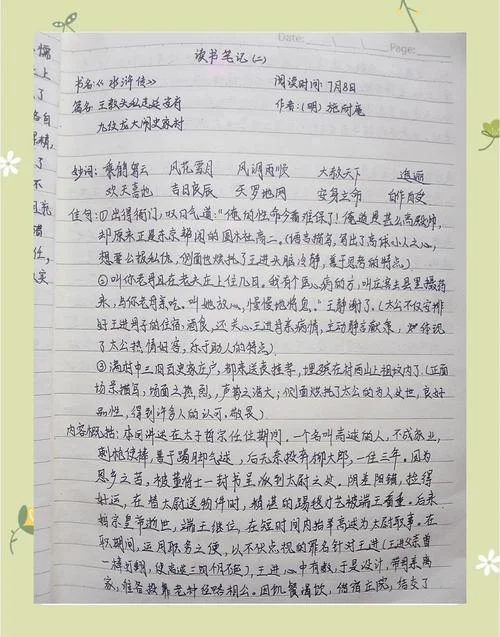 Date:
Page:
读书笔记(二)
书名:《水浒传》 阅读时间:7月8日
篇名:王教头私走延安府 作者:(明)施耐庵
九纹龙大闹史家村
妙词: 风花雪月 风调雨顺 大赦天下 迤逦
欢天喜地 吉日良辰 天罗地网 安身立命 自作自受
佳句:①出得衙门,叹口气道:“俺的性命今番难保了!俺道是甚么高殿帅,
却原来正是东京帮闲的圆社高二。(语言描写,写出了高俅小人之心,
想要公报私仇,侧面也烘托了王进头脑冷静,善于思考的特点)
②叫你老母且在老夫庄上住几日。我有个医心痛的方,叫庄客去县里撮药
来,与你老母亲吃。叫她放心,慢慢地将息。”王进谢了。(太公不仅安排
好王进母子的住宿、酒食,还关心王进母亲病情,主动献药,体现
了太公热情好客,乐于助人的特点)
③满村中三四百史家庄户,都来送丧挂孝,埋殡在村西山上祖坟内了。(正面
场景描写,场面之热烈,声势之浩大;侧面烘托了太公的为人处世,良好
品性,得到许多人的认可、敬爱)
内容概括:本回讲述在太子哲宗在位期间,一个名叫高俅的人,不成家业,
刺枪使棒,善于踢脚气毬,后无奈投奔柳大郎,一住三年。因为
思乡之苦,被董将士一封书呈派到太尉之处。阴差阳错,捡得
好运,在替太尉送物件时,精湛的踢毬才艺被端王看重。后来
哲宗皇帝逝世,端王继位,在短时间内抬举高俅为太尉职事。在
职期间,运用职务之便,以不伏点视的罪名针对王进(王进父亲曾
一棒打翻,使高俅三四月不起),王进心中有数,于是设计,带母亲离
家,准备投靠老种经略相公。因饥餐渴饮,借宿庄院,结交了